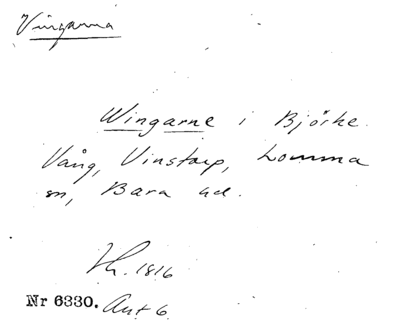 Vingarna
Wingarne i Björke
Vång, Vinstorp, Lomma
sn, Bara hd.
Sk. 1816
Nr 6330. Akt 6